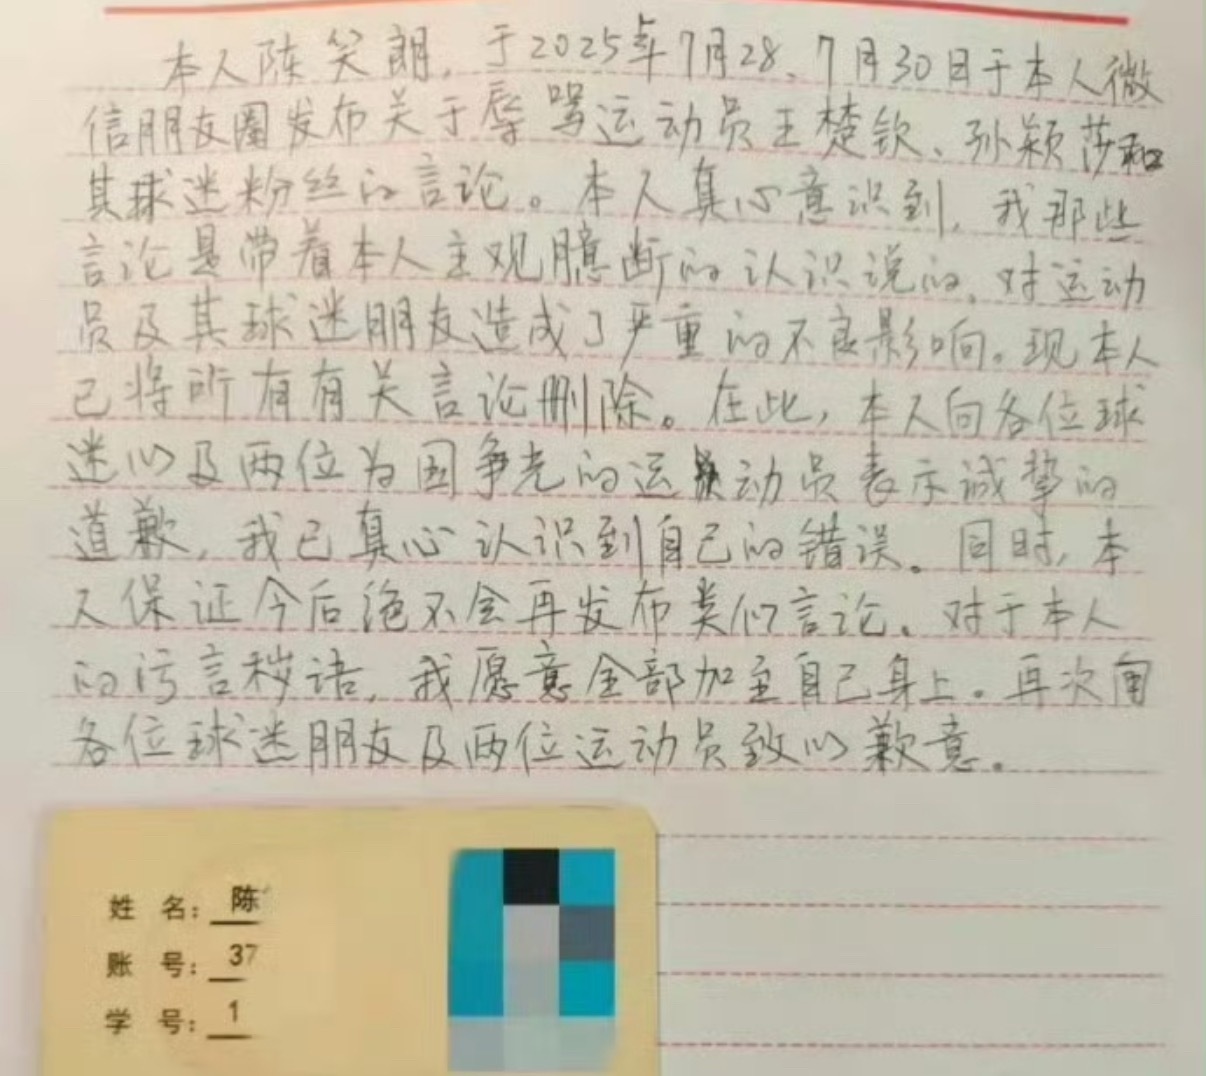 本人陈笑朗，于2025年7月28、7月30日于本人微
信朋友圈发布关于辱骂运动员王楚钦、孙颖莎和
其球迷粉丝的言论。本人真心意识到，我那些
言论是带着本人主观臆断的认识说的，对运动
员及其球迷朋友造成了严重的不良影响。现本人
已将所有有关言论删除。在此，本人向各位球
迷以及两位为国争光的运动员表示诚挚的
道歉，我已真心认识到自己的错误。同时，本
人保证今后绝不会再发布类似言论。对于本人
的污言秽语，我愿意全部加至自己身上。再次向
各位球迷朋友及两位运动员致以歉意。
姓 名：陈
账 号：37
学 号：1